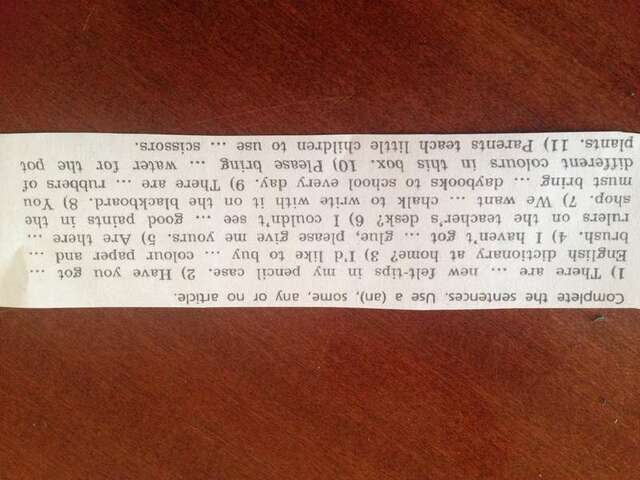 Complete the sentences. Use a (an), some, any or no article.
1) There are ... new felt-tips in my pencil case. 2) Have you got ...
English dictionary at home? 3) I'd like to buy ... colour paper and ...
brush. 4) I haven't got ... glue, please give me yours. 5) Are there ...
rulers on the teacher's desk? 6) I couldn't see ... good paints in the
shop. 7) We want ... chalk to write with it on the blackboard. 8) You
must bring ... daybooks to school every day. 9) There are ... rubbers of
different colours in this box. 10) Please bring ... water for the pot
plants. 11) Parents teach little children to use ... scissors.